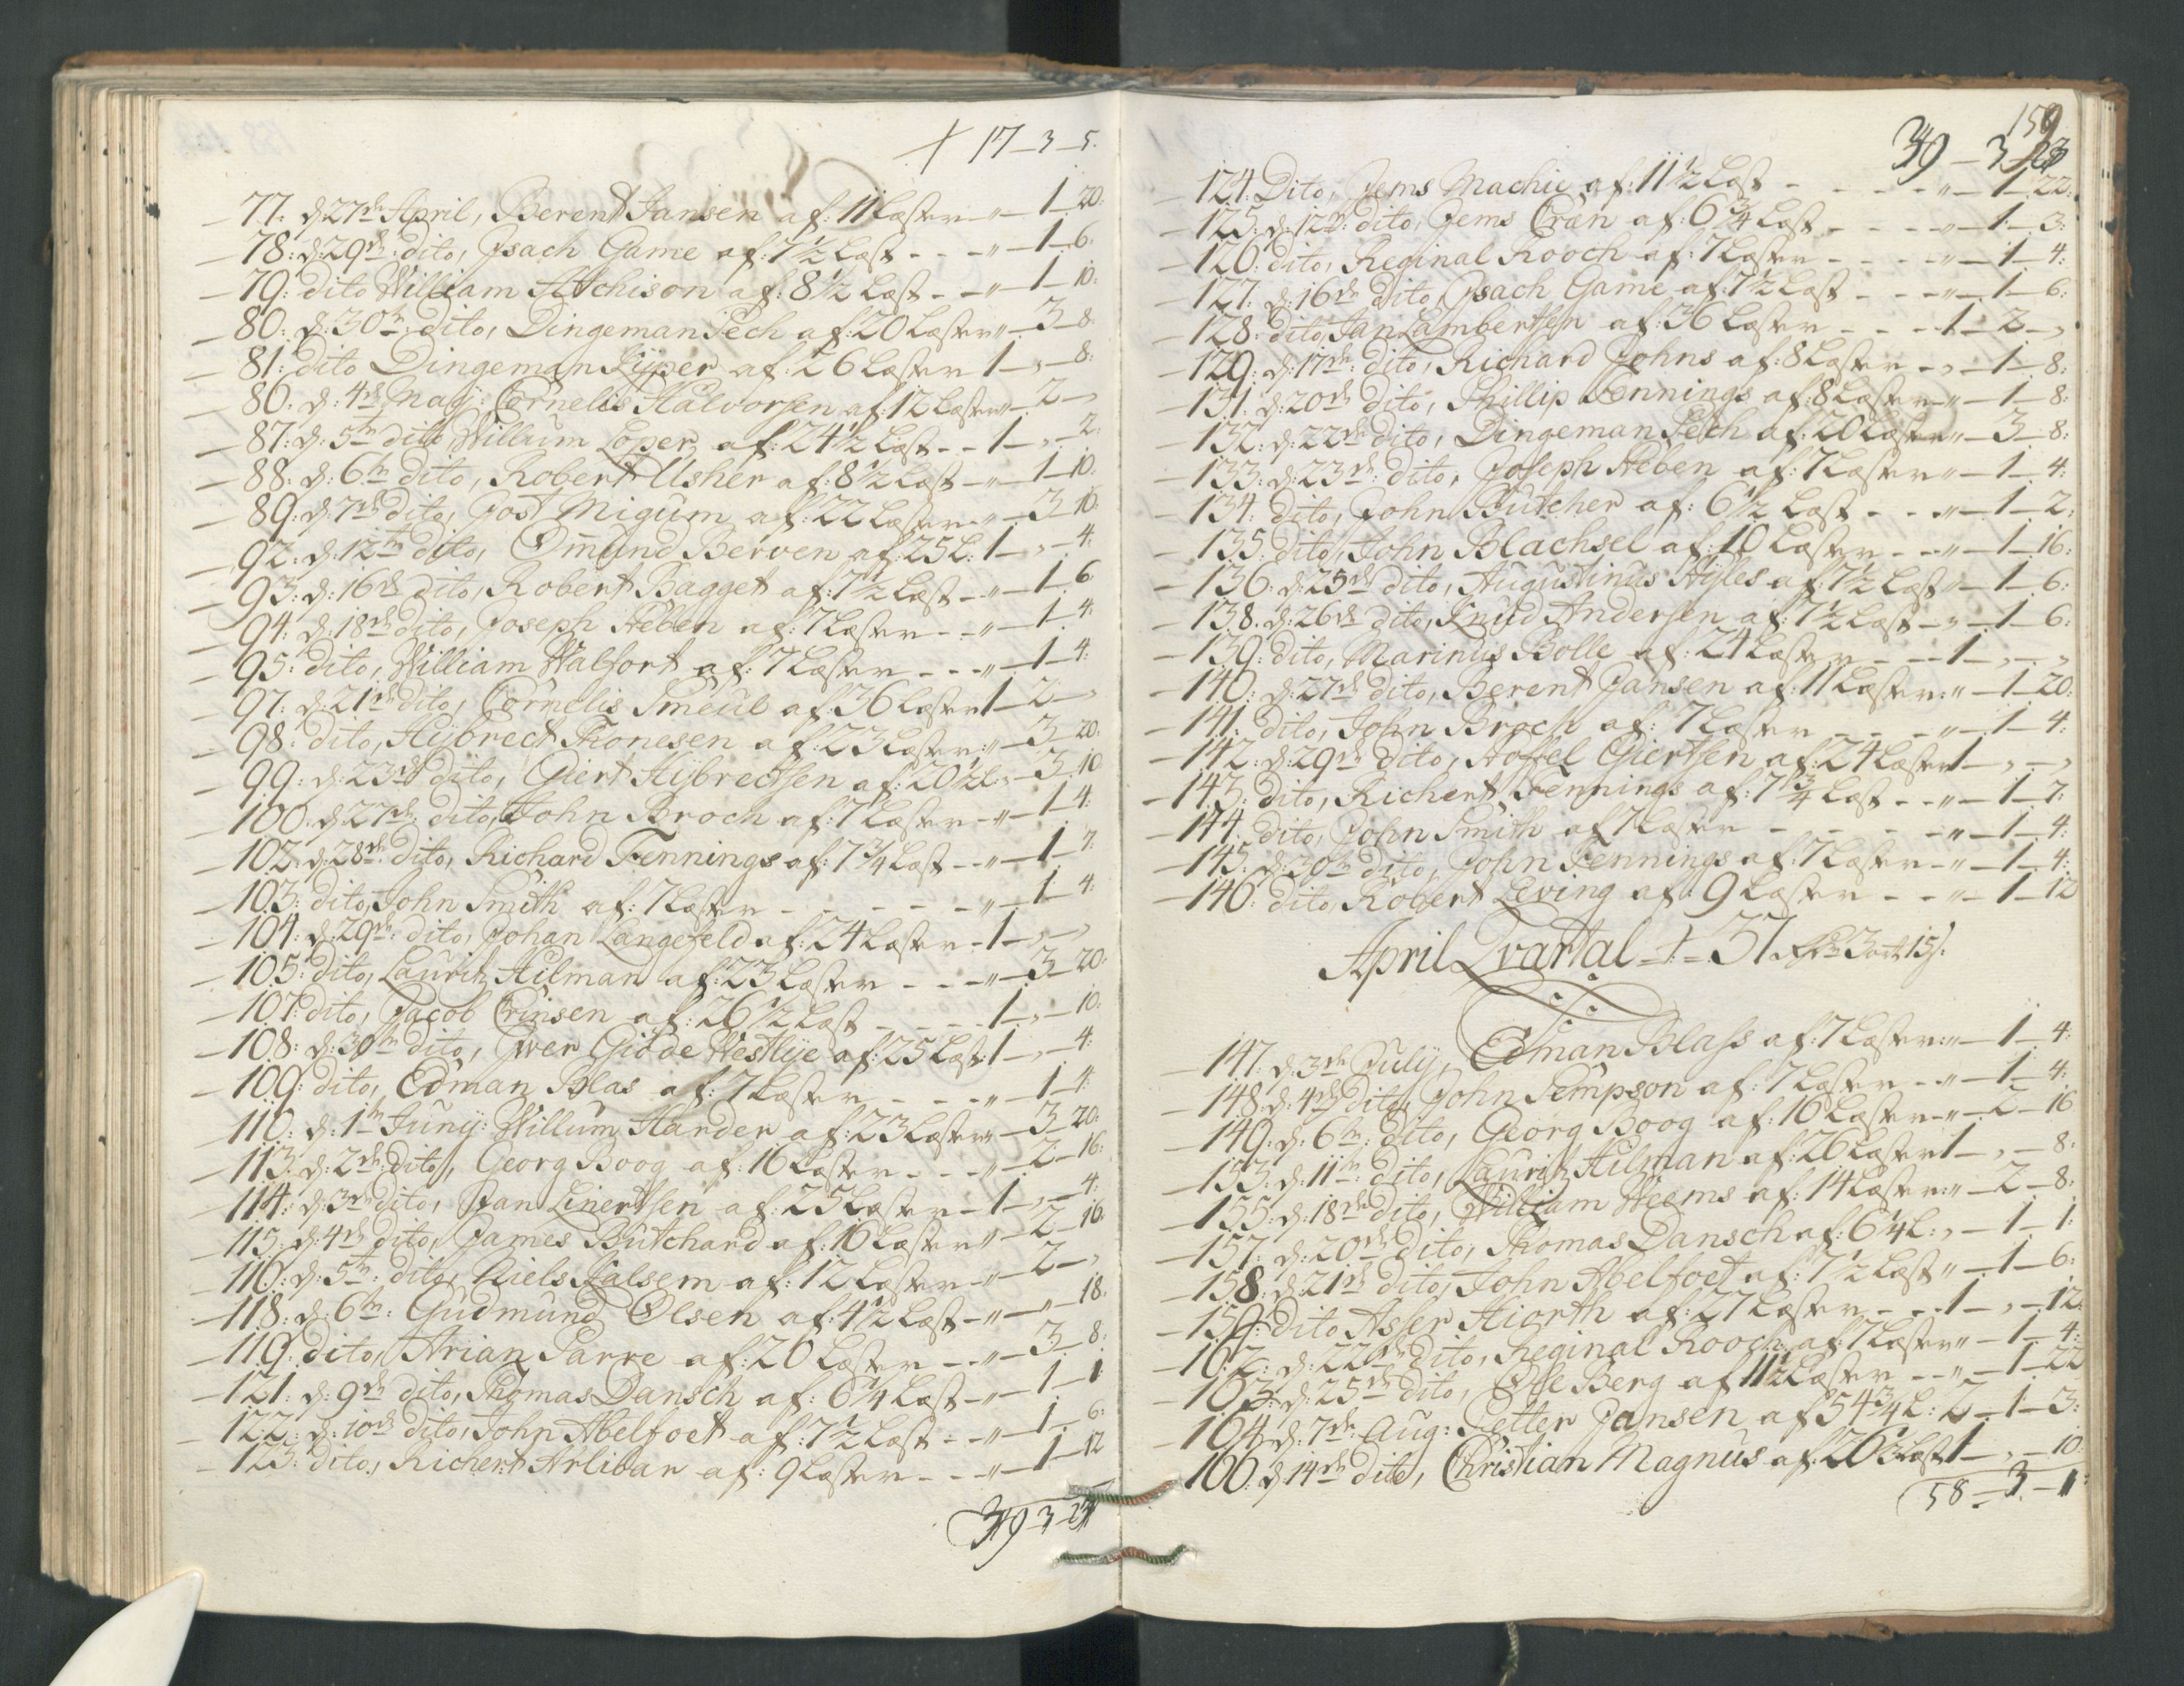 17 _ 3 _ 5.
77: d: 27de April, Berent Jansen af: 11 Læster „ _ 1 _ 20:
78: d: 29de dito, Jsach Game af: 7 1/2 Læst - - - „ _ 1 _ 6:
79: dito William Atchison af: 8 1/2 Læst - - „ _ 1 _ 10:
80: d: 30te dito, Dingeman Pech af: 20 Læster „ _ 3 _ 8:
81: dito Dingeman Kijper af: 26 Læster 1 _ „ _ 8:
86: d: 4de Maij: Cornelis Halvorsen af: 12 Læster „ _ 2 _ „
87: d: 5te dito Willum Loper af: 24 1/2 Læst - - 1 _ „ _ 2:
88: d: 6te dito, Robert Usher af: 8 1/2 Læst - „ _ 1 _ 10:
89: d: 7de dito, Jost Migum af: 22 Læster - „ _ 3 _ 10:
92: d: 12te dito, Omund Berven af: 25 L: 1 _ „ _ 4:
93: d: 16de dito, Robert Bagget af: 7 1/2 Læst - „ _ 1 _ 6
94: d: 18de dito, Joseph Heben af: 7 Læster - - „ _ 1 _ 4:
95: dito, William Walfort af: 7 Læster - - - „ _ 1 _ 4:
97: d: 21de dito, Cornelis Smeul af: 36 Læster 1 _ 2 _ „
98: dito, Hijbrect Thonesen af: 23 Læster: „ _ 3 _ 20:
99: d: 23de dito, Giert Hijbrectsen af: 20 1/2 L: „ _ 3 _ 10
100: d: 27de dito, John Broch af: 7 Læster - „ _ 1 _ 4:
102: d: 28de dito, Richard Fennings af: 7 3/4 Læst - - „ _ 1 _ 7:
103: dito, John Smith af: 7 Læster - - - - - „ _ 1 _ 4:
104: d: 29de dito, Johan Langefeld af: 24 Læster - 1 _ „ _ „
105: dito, Lauritz Hilman af: 23 Læster - - - „ _ 3 _ 20:
107: dito, Jacob Crinsen af: 26 1/2 Læst - - - - 1 _ „ _ 10:
108: d: 30te dito, Jver Giöde Westlye af: 25 Læst: 1 _ „ _ 4:
109: dito, Edman Blas af: 7 Læster - - - - „ _ 1 _ 4:
110: d: 1te Junij: Willum Harder af: 23 Læster „ _ 3 _ 20:
113: d: 2de dito, Georg Boog af: 16 Læster - - - „ _ 2 _ 16:
114: d: 3de dito, Stan Linertsen af: 25 Læster - 1 _ „ _ 4:
115: d: 4de dito, James Butchard af: 16 Læster „ _ 2 _ 16:
116: d: 5te: dito, Niels Kalsem af: 12 Læster - „ _ 2 _ „
118: d: 6te: Gudmund Olsen af: 4 1/2 Læst - „ _ „ _ 18:
119: dito, Arian Parre af: 20 Læster - - „ _ 3 _ 8:
121: d: 9de dito, Thomas Dansch af: 6 1/4 Læst - „ _ 1 _ 1
122: d: 10de dito, John Abelfoet af: 7 1/2 Læst - - „ _ 1 _ 6:
123: dito, Richert Arlibar af: 9 Læster - - - „ _ 1 _ 12
39 _ 3
159
39 _ 3 _ 23
124: Dito, Jems Machie af: 11 1/2 Læst - - - - - „ _ 1 _ 22:
125: d: 12te: dito, Jems Cræn af: 6 3/4 Læst - - - - „ _ 1 _ 3:
126: dito, Reginal Rooch af: 7 Læster - - - - - „ _ 1 _ 4:
127: d: 16de dito, Jsach Game af: 7 1/2 Læst - - - „ _ 1 _ 6:
128: dito, Jan Lambertsen af: 36 Læster - - - 1 _ 2 _ „
129: d: 17de: dito, Richard Johns af: 8 Læster - „ _ 1 _ 8:
131: d: 20de dito, Phillip Fennings af: 8 Læster - „ _ 1 _ 8:
132: d: 22de dito, Dingeman Pech af: 20 Læster „ _ 3 _ 8:
133: d: 23de: dito, Joseph Heben af: 7 Læster „ _ 1 _ 4:
134: dito, John Butcher af: 6 1/2 Læst - - - „ _ 1 _ 2:
135: dito, John Blachsel af: 10 Læster - - - „ _ 1 _ 16:
136: d: 25de dito, Augustinus Hijles af: 7 1/2 Læst „ _ 1 _ 6:
138: d: 26de dito, Knud Andersen af: 7 1/2 Læst - „ _ 1 _ 6:
139: dito, Marinus Bolle af: 24 Læster - - - 1 _ „ _ „
140: d: 27de dito, Berent Jansen af: 11 Læster: „ _ 1 _ 20:
141: dito, John Broch af: 7 Læster - - - - „ _ 1 _ 4:
142: d: 29de dito, Hoffel Giertsen af: 24 Læster 1 _ „ _ „
143: dito, Richert Fennings af: 7 3/4 Læst - - „ _ 1 _ 7:
144: dito, John Smith af 7 Læster - - - - „ _ 1 _ 4:
145: d: 30te dito, John Fennings af: 7 Læster - „ _ 1 _ 4:
146: dito, Robert Leving af: 9 Læster - - „ _ 1 _ 12
April Qvartal
147: d: 3de Julij, Edman Blass af: 7 Læster: „ _ 1 _ 4:
148: d: 4de dito, John Sempson af: 7 Læster - - „ _ 1 _ 4:
149: d: 6te: dito, Georg Boog af: 16 Læster - „ _ 2 _ 16
153: d: 11te: dito, Lauritz Hilman af: 26 Læster 1 _ „ _ 8:
155: d: 18de dito, William Weems af: 14 Læster: „ _ 2 _ 8:
157: d: 20de dito, Thomas Dansch af: 6 1/4 L: „ _ 1 _ 1:
158: d: 21de dito, John Abelfoet af: 7 1/2 Læst „ _ 1 _ 6:
159: dito Asser Hiorth af: 27 Læster - - - 1 _ „ _ 12:
162: d: 22de dito, Reginal Rooch af: 7 Læster „ _ 1 _ 4:
163: d: 25de dito, Ole Berg af 11 1/2 Læster - - „ _ 1 _ 22
164: d: 7de Aug: Petter Jansen af 54 3/4 L: 2 _ 1 _ 3:
166: d: 14de dito, Christian Magnus af: 26 1/2 Læst 1 _ „ _ 10
58 _ 3 _ 1